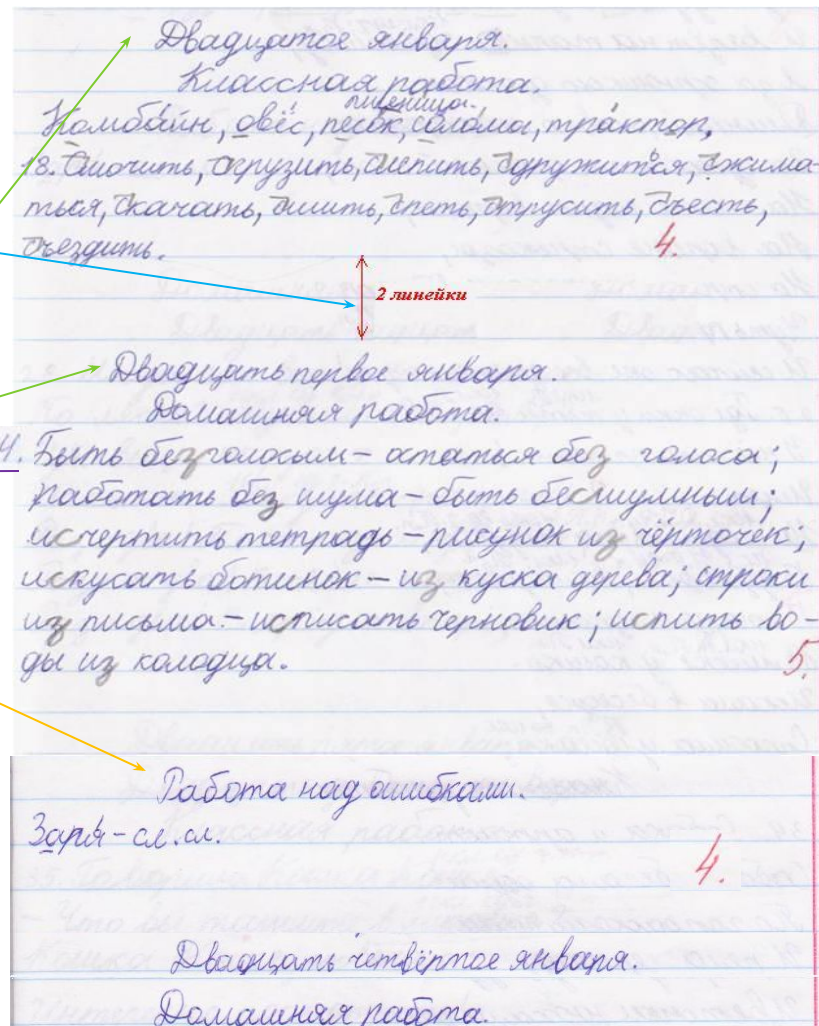 Двадцатое января.
Классная работа.
пшеница.
Комбайн, овёс, песок, солома, трактор,
13. Смочить, сгрузить, слепить, сдружиться, сжима-
ться, скачать, сшить, спеть, струсить, съесть,
съездить.
4.
2 линейки
Двадцать первое января.
Домашняя работа.
4. Быть безголосым – остаться без голоса;
работать без шума – быть бесшумным;
исчертить тетрадь – рисунок из чёрточек;
искусать ботинок – из куска дерева; строки
из письма – исписать черновик; испить во-
ды из колодца.
5.
Работа над ошибками.
Заря – сл. сл.
4.
Двадцать четвёртое января.
Домашняя работа.